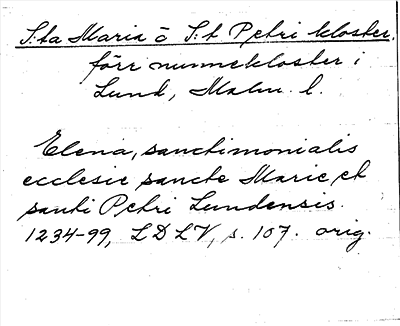 S:ta Maria o S:t Petri kloster,
förr nunnekloster i
Lund, Malm. l.
Elena, sanctimonialis
ecclesie sancte Marie et
santi Petri Lundensis.
1234-99, LDLV, s. 107. orig.